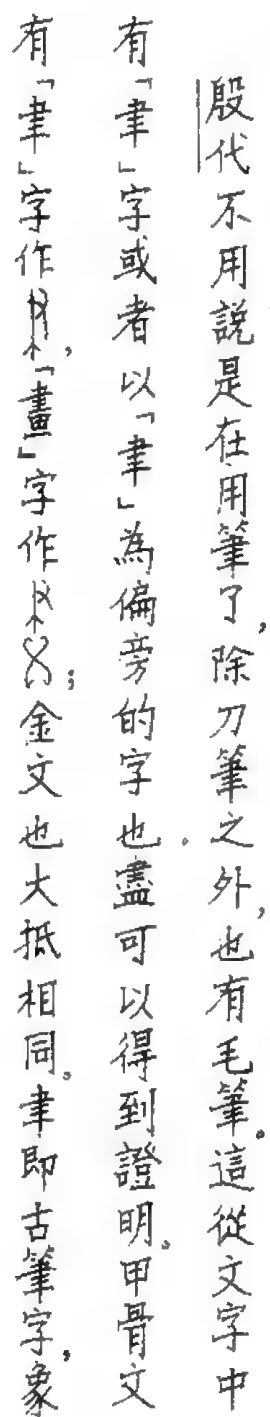 殷代不用説是在用筆了，除刀筆之外，也有毛筆。這從文字中
有「聿」字或者以「聿」為偏旁的字也。盡可以得到證明。甲骨文
有「聿」字作，「畫」字作；金文也大抵相同。聿即古筆字，象